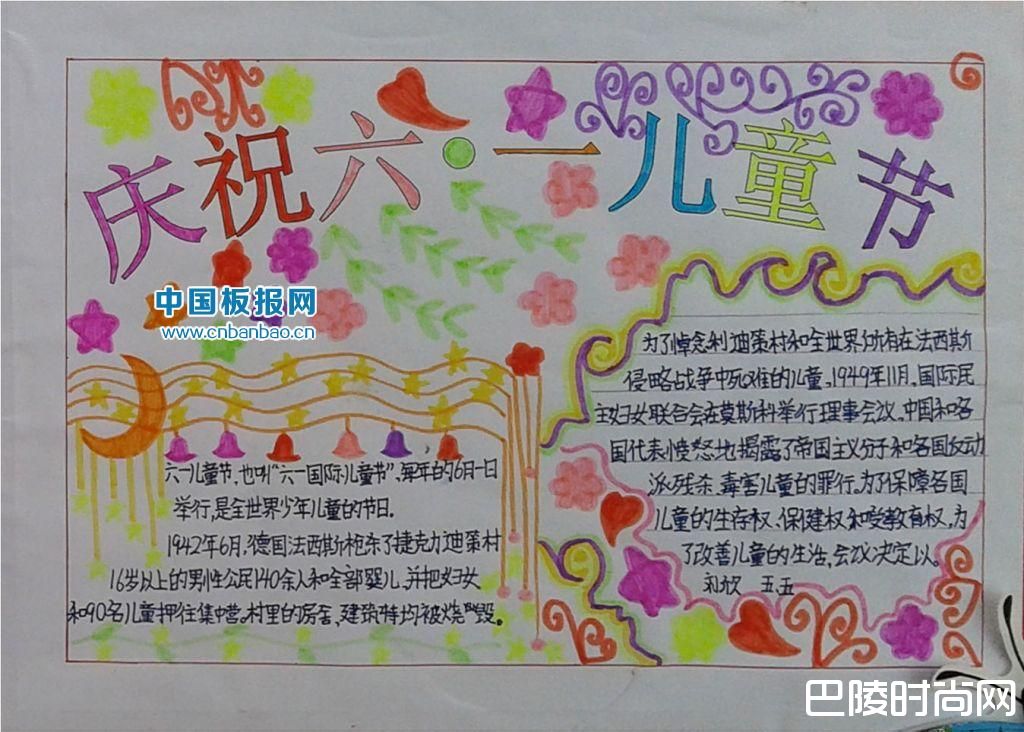 庆祝六·一儿童节
中国板报网
www.cnbanbao.cn
六一儿童节,也叫“六一国际儿童节”,每年的6月一日
举行,是全世界少年儿童的节日。
1942年6月,德国法西斯枪杀了捷克力迪策村
16岁以上的男性公民140余人和全部婴儿,并把妇女
和90名儿童押往集中营。村里的房舍,建筑特均被烧毁。
为了悼念利迪策村和全世界所有在法西斯
侵略战争中死难的儿童。1949年11月,国际民
主妇女联合会在莫斯科举行理事会议,中国和各
国代表愤怒地揭露了帝国主义分子和各国反动
派残杀、毒害儿童的罪行。为了保障各国
儿童的生存权、保健权和受教育权,为
了改善儿童的生活,会议决定以。
五五
巴陵时尚网